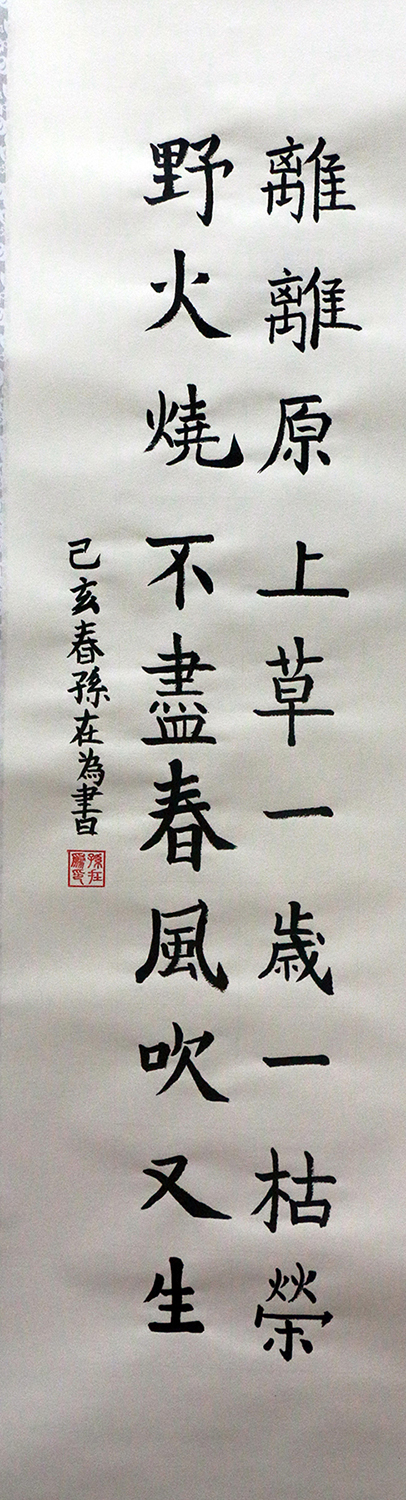 離離原上草一歲一枯榮
野火燒不盡春風吹又生
己亥春孫在為書
孫在為印